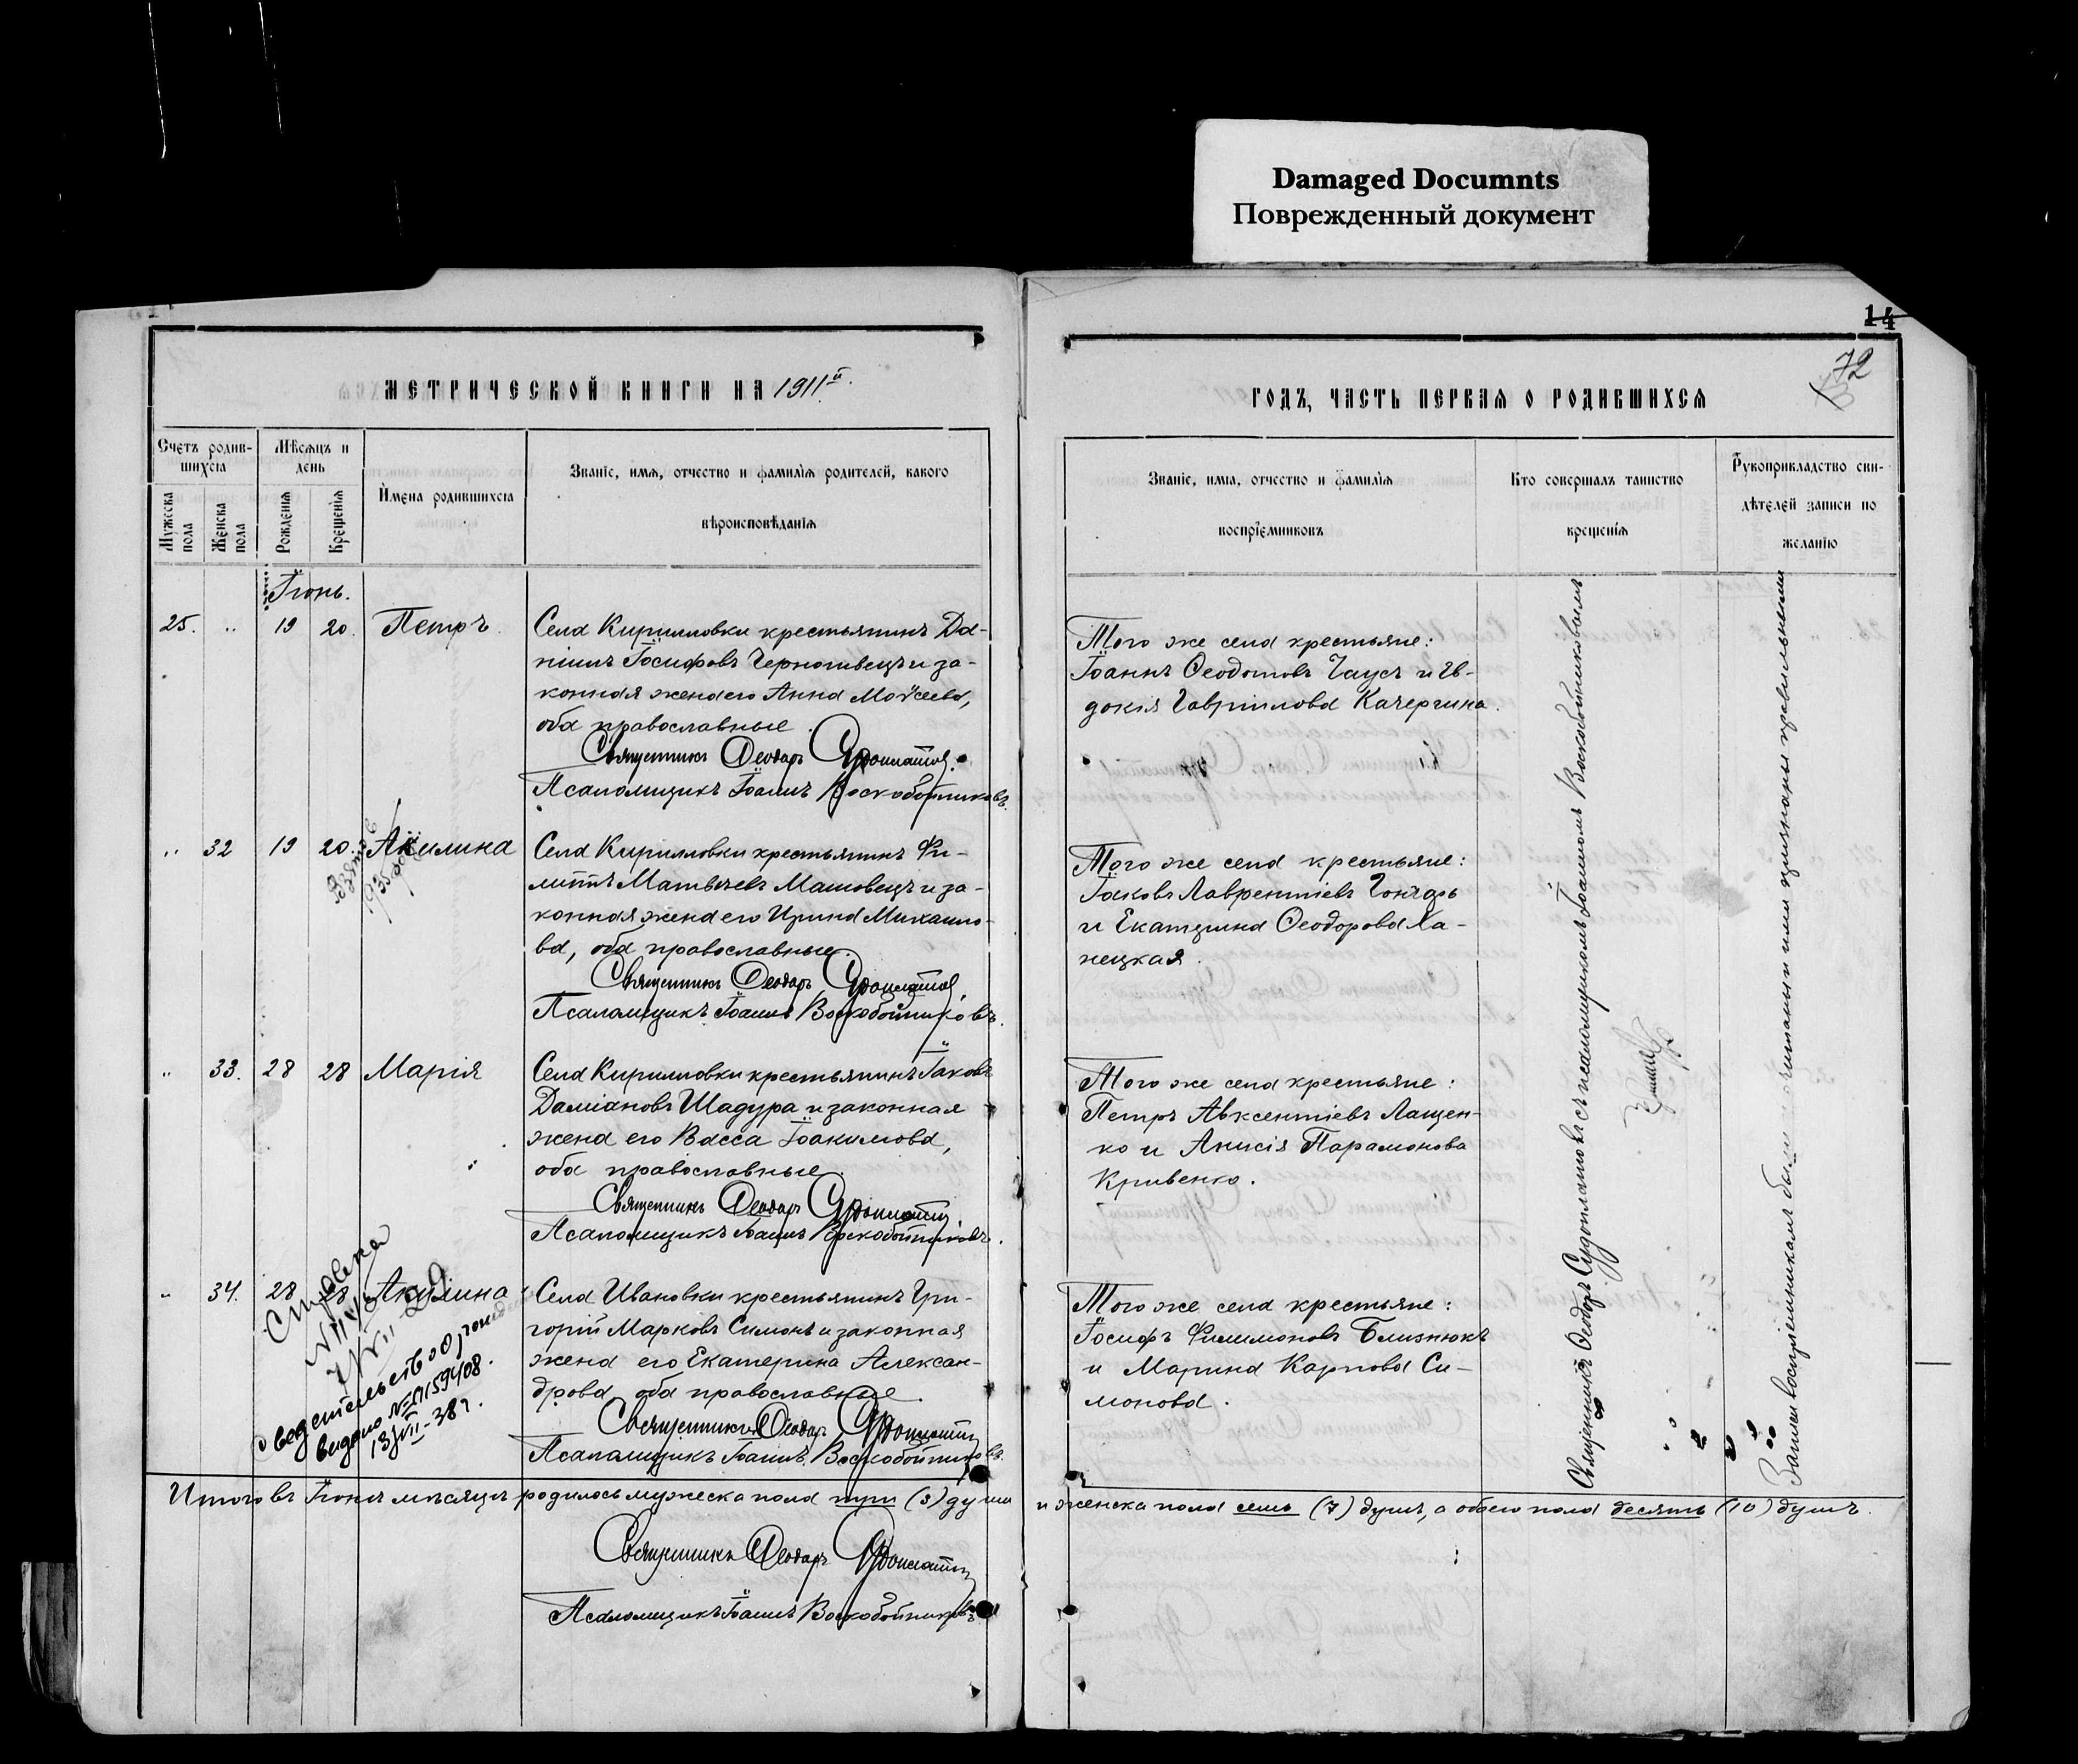 Damaged Documnts
Поврежденный документ
14
72
МЕТРИЧЕСКОЙ КНИГИ НА 1911й.
ГОДЪ, ЧАСТЬ ПЕРВАЯ О РОДИВШИХСЯ
Счетъ родив-
шихся
Мужеска пола
Женска пола
Мѣсяцъ и
день
Рожденія
Крещенія
Имена родившихся
Званіе, имя, отчество и фамилія родителей, какого
вѣроисповѣданія
Званіе, имя, отчество и фамилія
воспріемниковъ
Кто совершалъ таинство
крещенія
Рукоприкладство сви-
дѣтелей записи по
желанію
Іюнь.
25. „ 19 20. Петръ.
Села Кирилловки крестьянинъ Да-
ніилъ Іосифовъ и за-
конная жена его Анна Моѵсеева,
оба православные.
Священникъ Ѳеодоръ
Псаломщикъ Іоаннъ Воскобойниковъ.
Того же села крестьяне:
Іоаннъ Ѳеодотовъ Чаусъ и Ев-
докія Гавріилова Качергина.
„ 32 19 20. Акилина
Взята
1935
Села Кирилловки крестьянинъ Фи-
липпъ Матвѣевъ Машовецъ и за-
конная жена его Ирина Михаило-
ва, оба православные.
Священникъ Ѳеодоръ
Псаломщикъ Іоаннъ Воскобойниковъ.
Того же села крестьяне:
Іаковъ Лаврентіевъ Гончаръ
и Екатерина Ѳеодорова Ха-
нецкая.
„ 33. 28 28 Марія
Села Кирилловки крестьянинъ Іаковъ
Даміановъ Шадура и законная
жена его Васса Іоакимова,
оба православные.
Священникъ Ѳеодоръ
Псаломщикъ Іоаннъ Воскобойниковъ.
Того же села крестьяне:
Петръ Авксентіевъ Лащен-
ко и Анисія Парамонова
Кривенко.
„ 34. 28 28 Акилина
Справка
Сведетельство о рожд
видано № 159408.
13/VII-38 г.
Села Ивановки крестьянинъ Гри-
горій Марковъ Симонъ и законная
жена его Екатерина Алексан-
дрова, оба православные.
Священникъ Ѳеодоръ
Псаломщикъ Іоаннъ Воскобойниковъ.
Того же села крестьяне:
Іосифъ Филимоновъ Близнюкъ
и Марина Карпова Си-
монова.
Священникъ Ѳеодоръ съ псаломщикомъ Іоанномъ Воскобойниковымъ
Записи воспріемникамъ были читаны и ими признаны правильными
Итого въ Іюнѣ мѣсяцѣ родилось мужеска пола три (3) души и женска пола семь (7) душъ, а обоего пола десять (10) душъ.
Священникъ Ѳеодоръ
Псаломщикъ Іоаннъ Воскобойниковъ